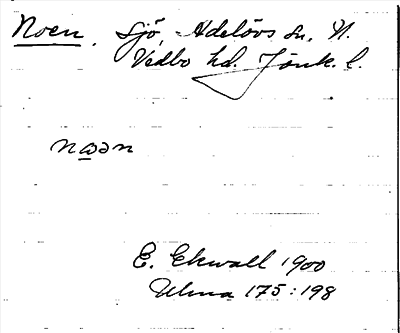 Noen, Sjö, Adelövs sn. N.
Vedbo hd. Jönk. l.
nωən
E. Ekwall 1900
Ulma 175:198